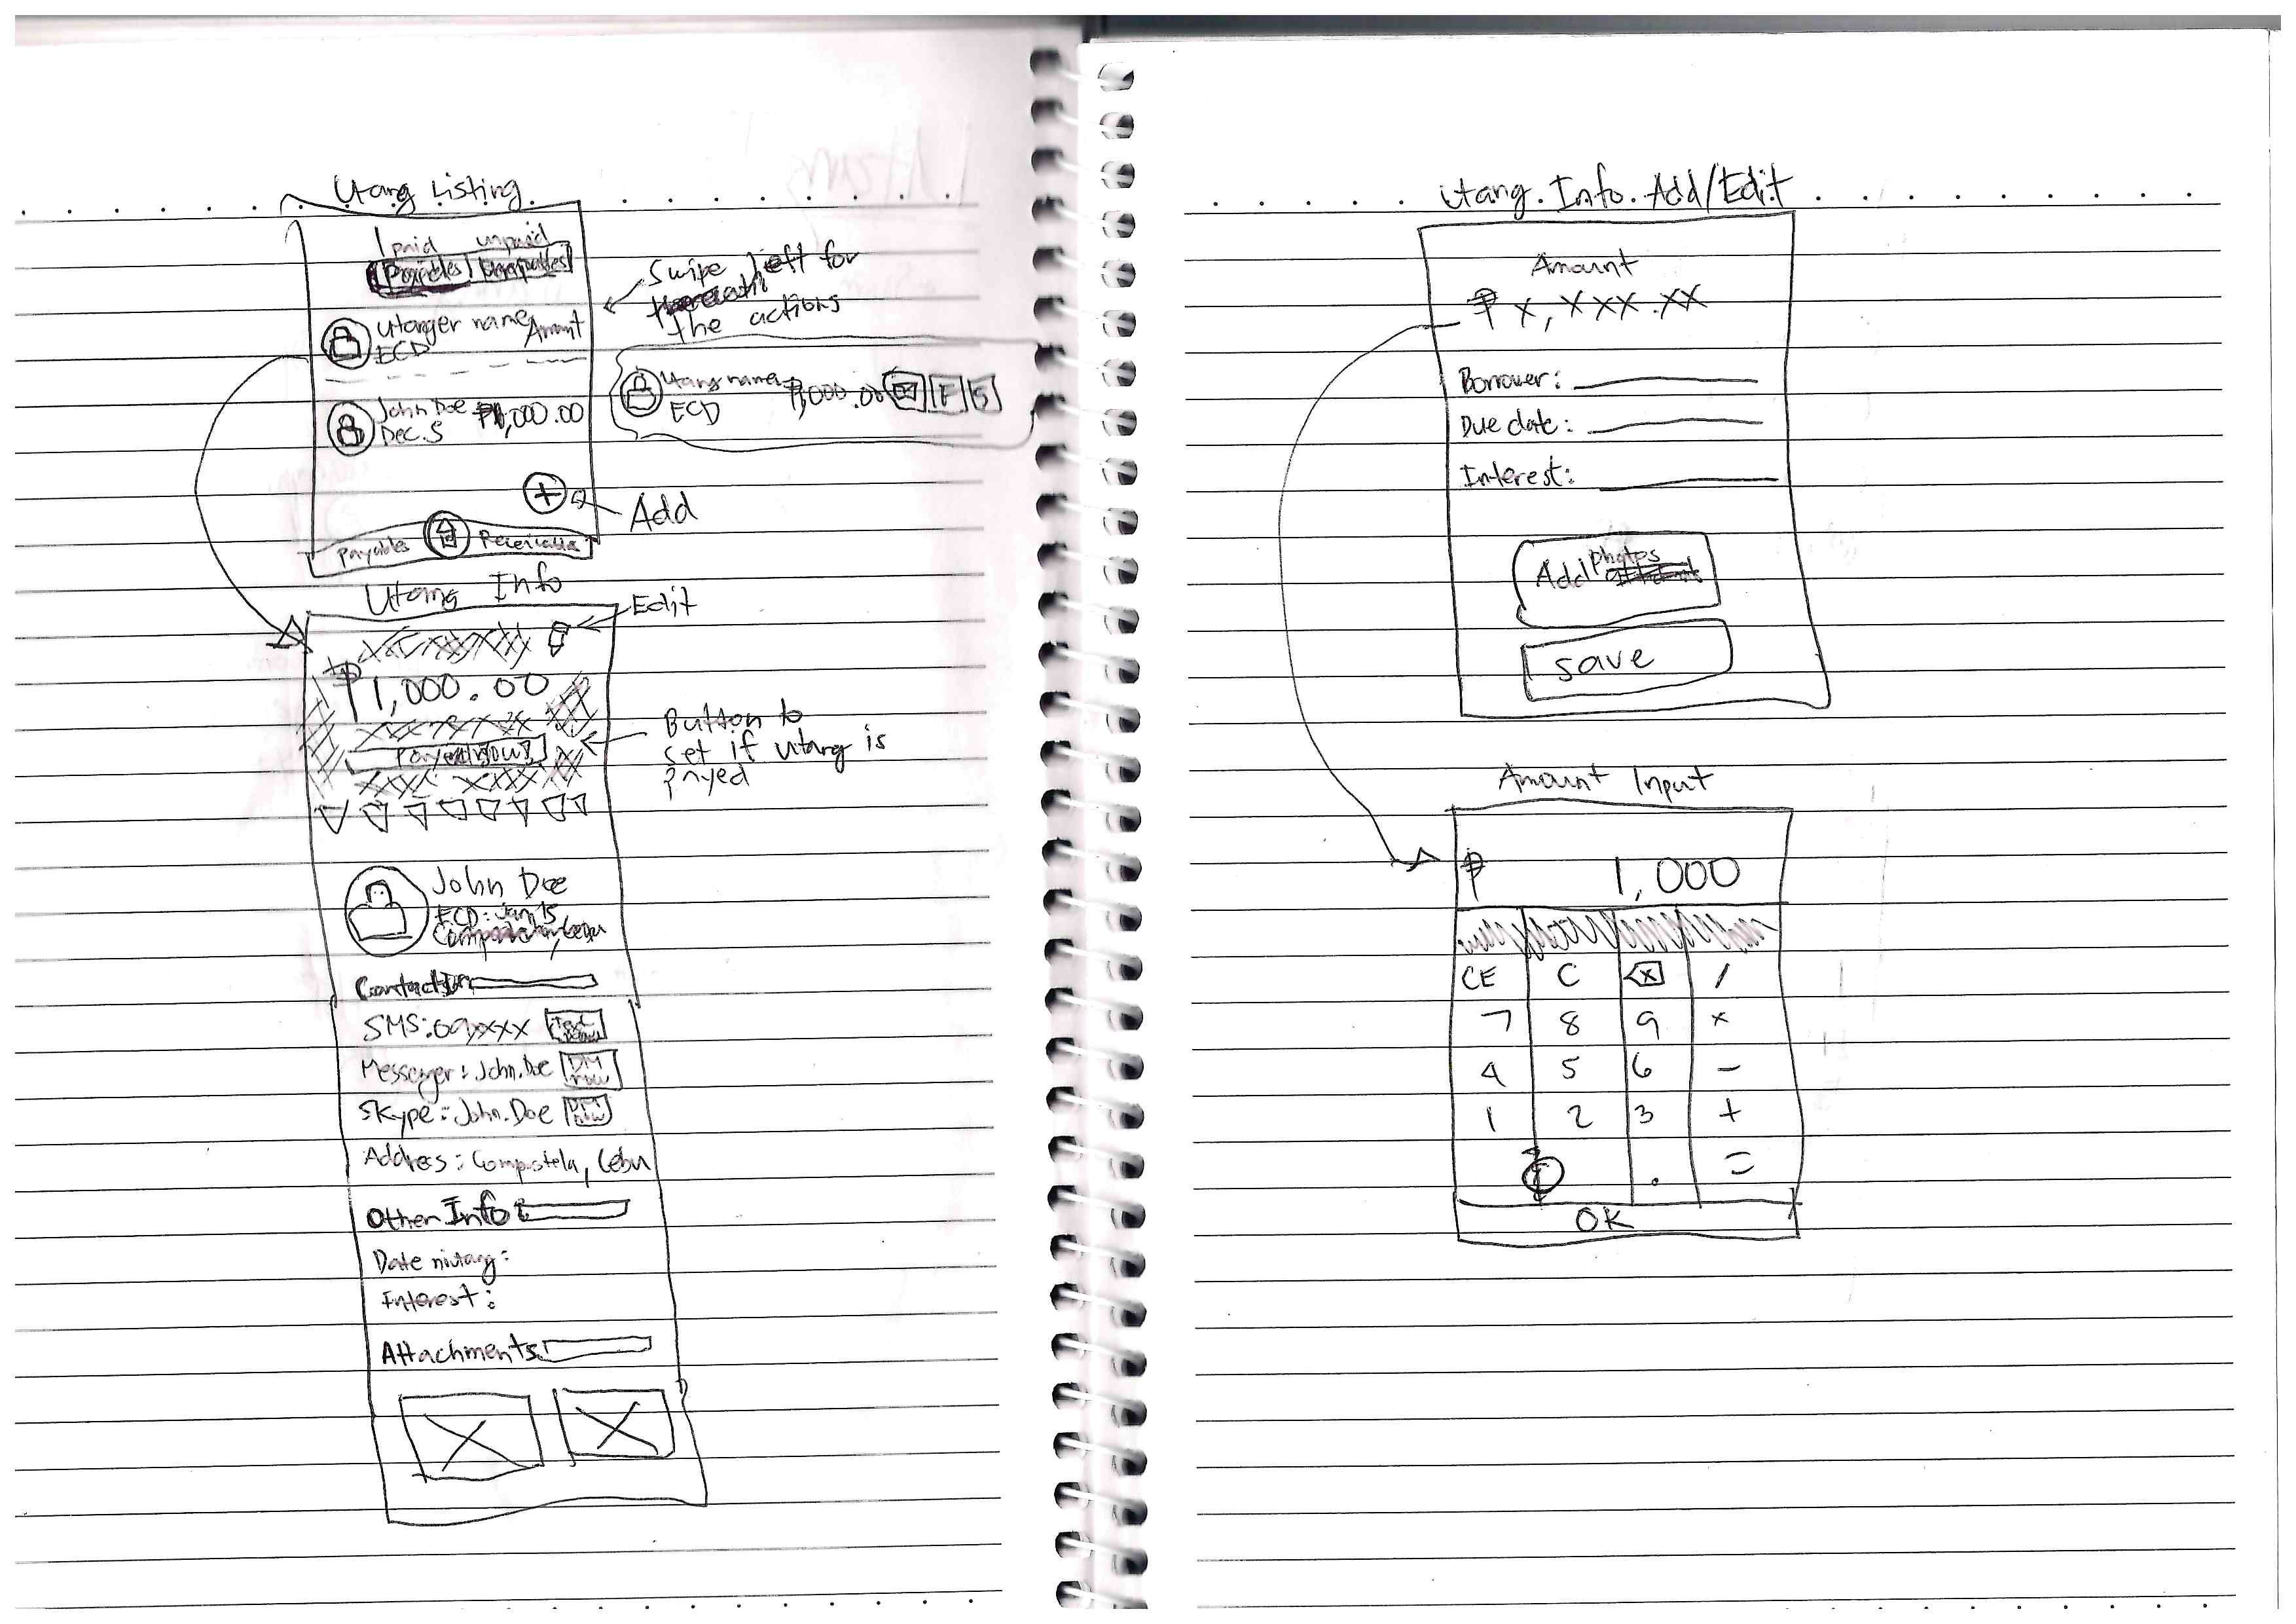 Utang Listing
paid unpaid
Utanger name Amount
ECD
John Doe ₱1,000.00
Dec. 5
Add
Payables Receivable
Swipe left for
the actions
Utang name ₱1,000.00 F S
ECD
Utang Info
Edit
₱1,000.00
Button to
set if utang is
payed
John Doe
ECD: Jan 15
Contact
SMS: 09xxxx Text
Messenger: John.Doe DM now
Skype: John.Doe DM now
Address: Compostela, Cebu
Other Info:
Date niutang:
Interest:
Attachments
Utang Info Add/Edit
Amount
₱ x,xxx.xx
Borrower:
Due date:
Interest:
Add photos
save
Amount Input
₱ 1,000
CE C x /
7 8 9 x
4 5 6 -
1 2 3 +
. =
OK